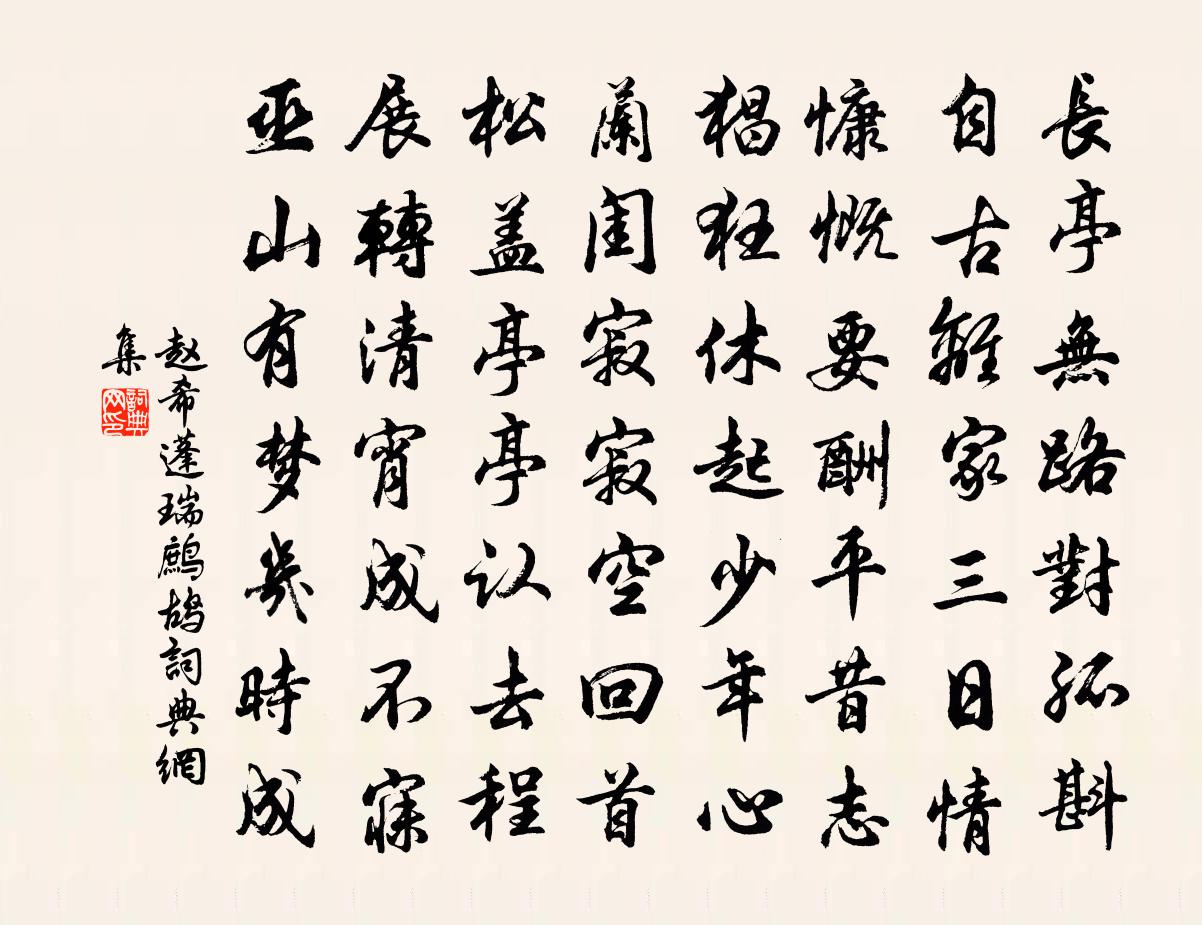 長亭無路對孤斟
自古離家三日情
慷慨要酬平昔志
猖狂休起少年心
蘭闺寂寂空回首
松盖亭亭认去程
展轉清宵成不寐
巫山有梦几時成
赵希蓬瑞鹧鸪詞典網
集
詞典网印